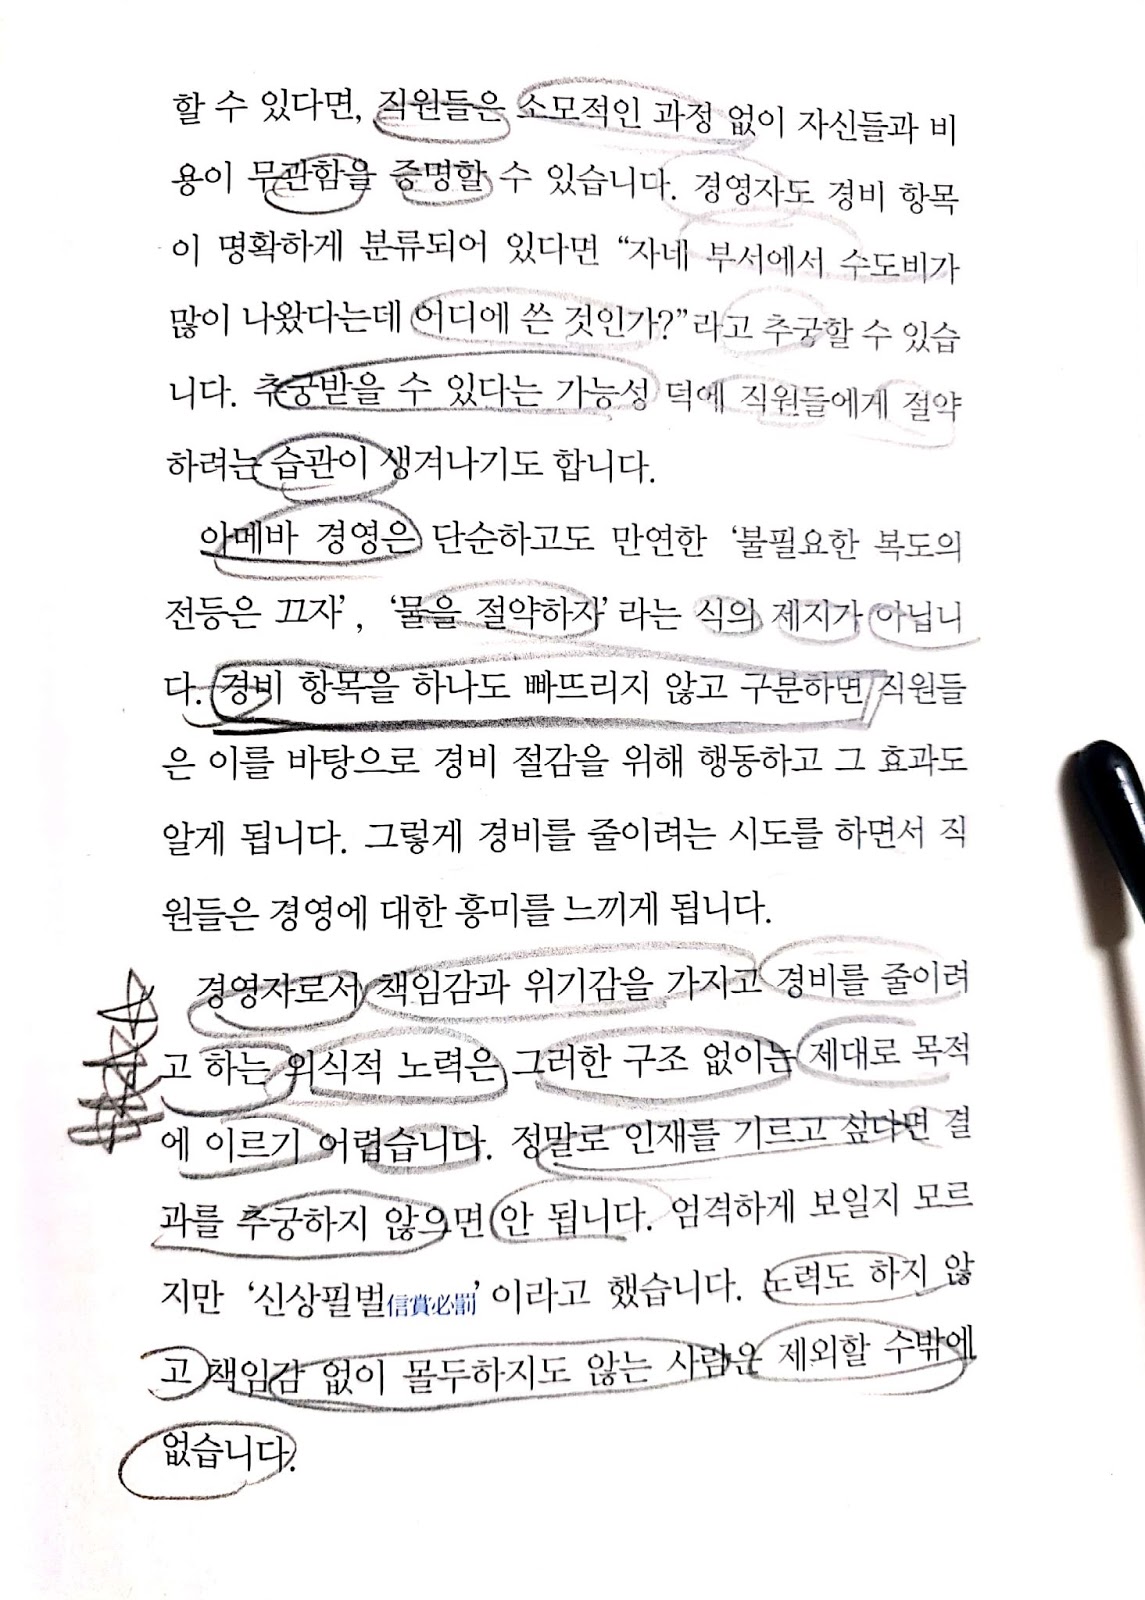 할 수 있다면, 직원들은 소모적인 과정 없이 자신들과 비
용이 무관함을 증명할 수 있습니다. 경영자도 경비 항목
이 명확하게 분류되어 있다면 “자네 부서에서 수도비가
많이 나왔다는데 어디에 쓴 것인가?”라고 추궁할 수 있습
니다. 추궁받을 수 있다는 가능성 덕에 직원들에게 절약
하려는 습관이 생겨나기도 합니다.
아메바 경영은 단순하고도 만연한 ‘불필요한 복도의
전등은 끄자’, ‘물을 절약하자’라는 식의 제지가 아닙니
다. 경비 항목을 하나도 빠뜨리지 않고 구분하면 직원들
은 이를 바탕으로 경비 절감을 위해 행동하고 그 효과도
알게 됩니다. 그렇게 경비를 줄이려는 시도를 하면서 직
원들은 경영에 대한 흥미를 느끼게 됩니다.
경영자로서 책임감과 위기감을 가지고 경비를 줄이려
고 하는 의식적 노력은 그러한 구조 없이는 제대로 목적
에 이르기 어렵습니다. 정말로 인재를 기르고 싶다면 결
과를 추궁하지 않으면 안 됩니다. 엄격하게 보일지 모르
지만 ‘신상필벌信賞必罰’이라고 했습니다. 노력도 하지 않
고 책임감 없이 몰두하지도 않는 사람은 제외할 수밖에
없습니다.